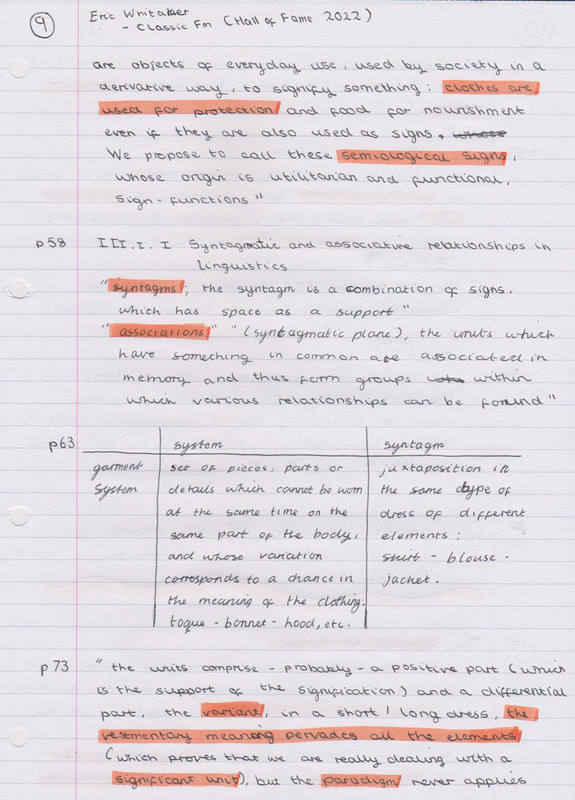 9
Eric Whitaker
- Classic FM (Hall of Fame 2022)
are objects of everyday use, used by society in a
derivative way, to signify something: clothes are
used for protection and food for nourishment
even if they are also used as signs.
We propose to call these semiological signs,
whose origin is utilitarian and functional,
sign-functions"
p58 III.I.I Syntagmatic and associative relationships in
linguistics
"syntagms; the syntagm is a combination of signs,
which has space as a support"
"associations" "(syntagmatic plane), the units which
have something in common are associated in
memory and thus form groups within
which various relationships can be found"
p63
system syntagm
garment set of pieces, parts or juxtaposition in
system details which cannot be worn the same type of
at the same time on the dress of different
same part of the body, elements:
and whose variation skirt - blouse -
corresponds to a chance in jacket.
the meaning of the clothing:
toque - bonnet - hood, etc.
p73 "the units comprise - probably - a positive part (which
is the support of the signification) and a differential
part, the variant, in a short / long dress, the
vestmentary meaning pervades all the elements
(which proves that we are really dealing with a
significant unit), but the paradigm never applies